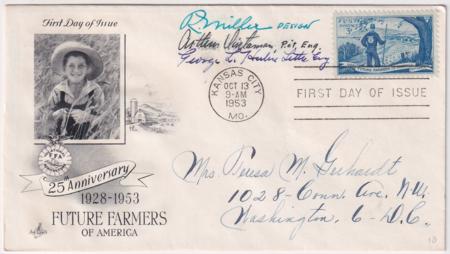 First Day of Issue
R Miller DESIGN
Arthur Vistaman, Pict. Eng.
George L. Huber Letter Eng
U.S. POSTAGE
3¢
FUTURE FARMERS
KANSAS CITY
OCT 13
9-AM
1953
MO.
FIRST DAY OF ISSUE
FFA
25th Anniversary
1928-1953
FUTURE FARMERS
OF AMERICA
Mrs Teresa M. Gerhardt
1028-Conn. Ave. N.W.
Washington 6-D.C.